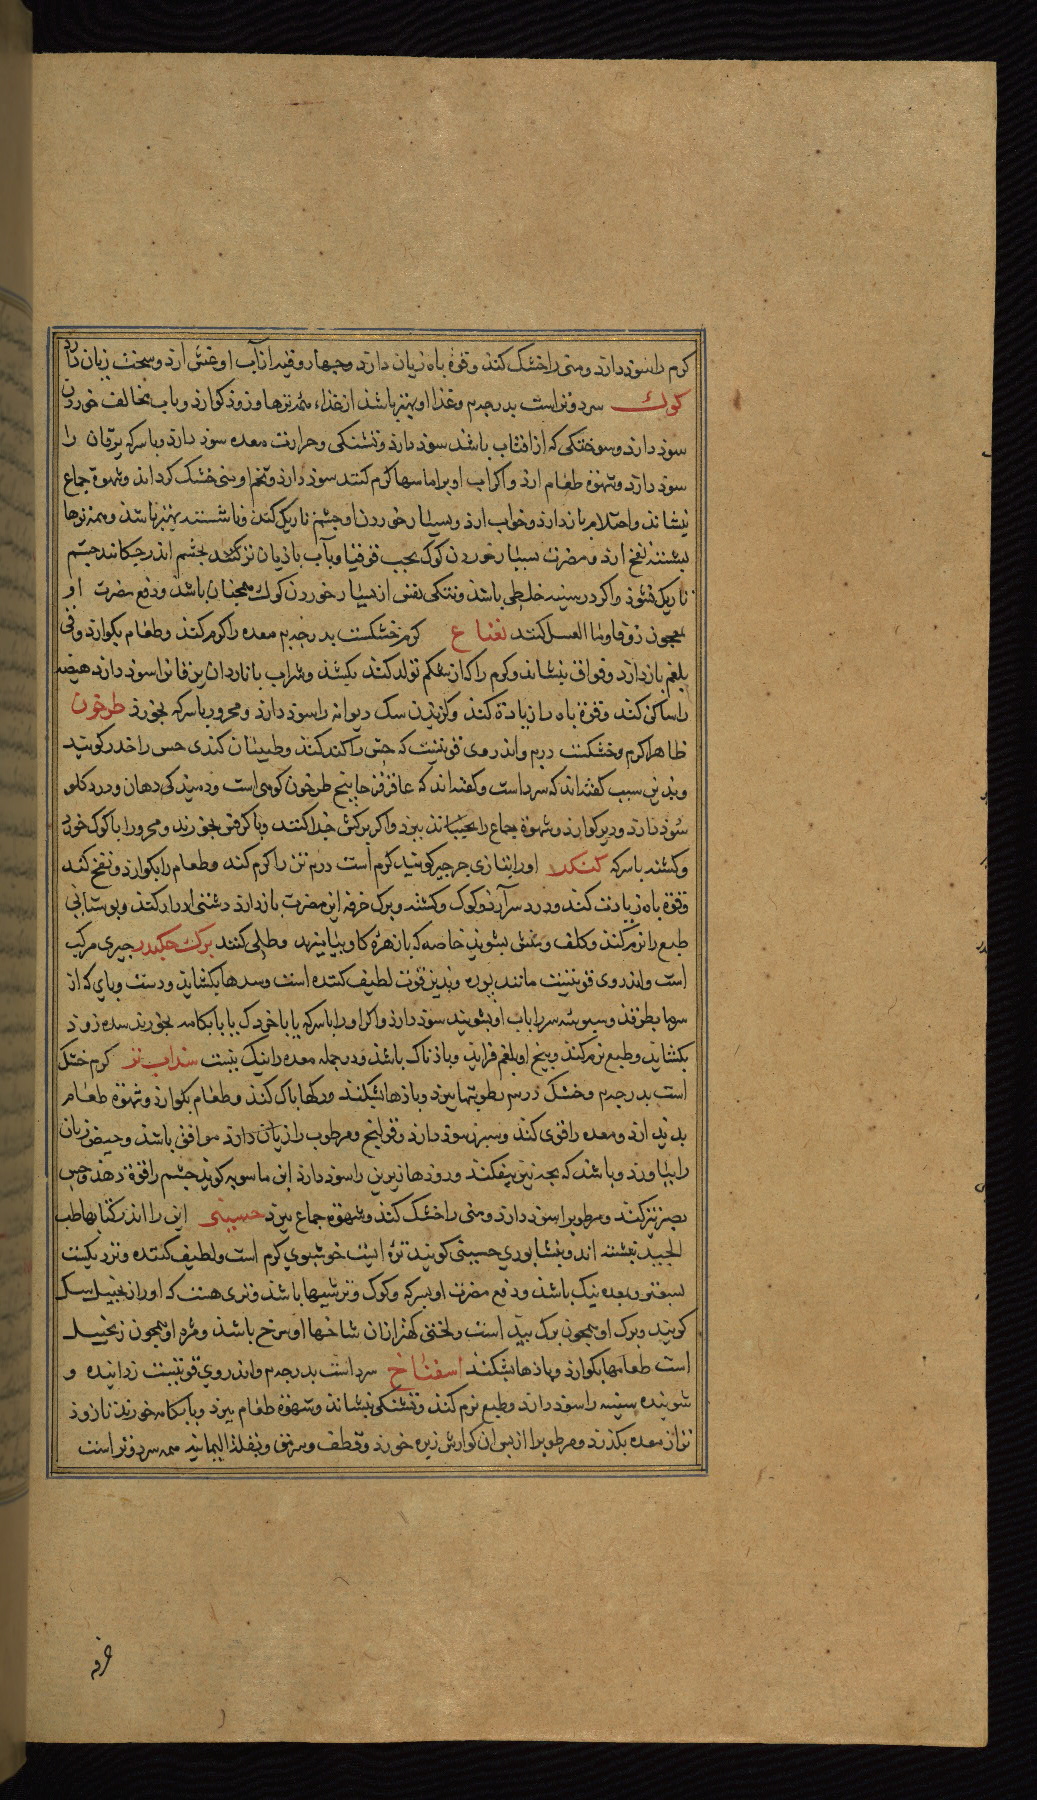 کرم را سوذ دارد و منی را خشک کند و قوة باه زیان دارد و چهار وقیه از آب او غشی آرد و سخت زیان دارد
کوک سرد و تر است بدرجه م و غذا او بهتر باشد از غذاء همه ترها و زوذ کوارد و باب مخالف خوردن
سوذ دارد و سوختکی که از افتاب باشد سوذ دارد و تشنکی و حرارت معده سوذ دارد و با سرکه یرقان را
سوذ دارد و شهوة طعام آرد و اکر آب او بر اماسهای کرم کنند سوذ دارد و تخم او منی خشک کرداند و شهوة جماع
بنشاند و احتلام باز دارد و خواب آرد و بسیار خوردن او چشم تاریک کند و ناشسته بهتر باشد و همه ترها
بشسته نفخ آرد و مضرت بسیار خوردن کوک بحب قوقیا و بآب بادیان تر کنند بچشم اندر چکانند چشم
تاریک نشوذ و اکر در سینه خلطی باشد و تنکی نفس از بسیار خوردن کوک همچنان باشد و دفع مضرت او
بمعجون زوفا و ما العسل کنند نعناع کرم و خشکست بدرجه م معده را کرم کند و طعام بکوارد و قی
بلغم باز دارد و فواق بنشاند و کرم را که از شکم تولد کند بکشد و شراب با ناردان یرقان را سوذ دارد هیضه
را ساکن کند و قوة باه را زیادة کند و کزیدن سک دیوانه را سوذ دارد و محرور با سرکه بخورد طرخون
ظاهرا کرم و خشکست درم و اندر وی قوتیست که حس را کند کند و طبیبان کندی حس را خدر کویند
و بدین سبب کفته اند که سرد است و کفته اند که عاقرقرحا بیخ طرخون کوهی است و دمیدکی دهان و درد کلو
سوذ دارد و دیر کوارد و شهوة جماع را بجنباند ببرد و اکر برکش جدا کنند و با کرفس بخورند و محرور را با کوک خورد
و کشنه با سرکه کنکر او را بتازی جرجیر کویند کرم است درم تن را کرم کند و طعام را بکوارد و نفخ کند
و قوة باه زیادت کند و درد سر آرد و کوک و کشنه و برک خرفه این مضرت باز دارد دشتی ادرار کند و بوستانی
طبع را نرم کند و کلف و نمش بشوید خاصه که با زهرة کاو بیامیزند و طلی کنند برک چکندر چیزی مرکب
است و اندر وی قوتیست مانند بوره و بدین قوت لطیف کننده است و سدها بکشاید و دست و پای که از
سرما بطرقد و سبوسه سر را باب او بشویند سوذ دارد و اکر او را با سرکه یا با خردل یا با آبکامه بخورند سده زوذ
بکشاید و طبع نرم کند و بیخ او بلغم فزاید و باذناک باشد و در جمله معده را نیک نیست سذاب تر کرم خشک
است بدرجه م و خشک درم رطوبتها ببرد و باذها بشکند و رکها پاک کند و طعام بکوارد و شهوة طعام
بدید آرد و معده را قوی کند و سپرز سوذ دارد و قولنج و مرطوب را زیان دارد موافق باشد و حیض زنان
را بیاورد و باشد که بچه نیز بیفکند و روذهازیرین را سوذ دارد ابن ماسویه کوید چشم را قوة دهد و حس
بصر تیز کند و مرطوبرا سوذ دارد و منی را خشک کند و شهوة جماع ببرد حسینی این را اندر کتابها طب
الجبید نبشته اند و بنشابوری حسینی کویند ترة ایست خوشبوی کرم است و لطیف کننده و نزدیکیست
بسعتر و معده نیک باشد و دفع مضرت او بسرکه و کوک و ترشیها باشد و تری هست که او را زنجبیل سک
کویند و برک او همچون برک بید است و لختی کهتر از ان شاخها او سرخ باشد و مزه او همچون زنجبیل
است طعامها بکوارد و باذها بشکند اسفناخ سرد است بدرجه م و اندر وی قوتیست زداینده و
شوینده سینه را سوذ دارد و طبع نرم کند و تشنکی بنشاند و شهوة طعام ببرد و با بکامه خورند تا زوذ
تر از معده بکذرد و مرطوبرا از بس ان کوارش زیره خورد و قطف و سرمق و بقلة الیمانیه همه سرد و تر است
خرفه